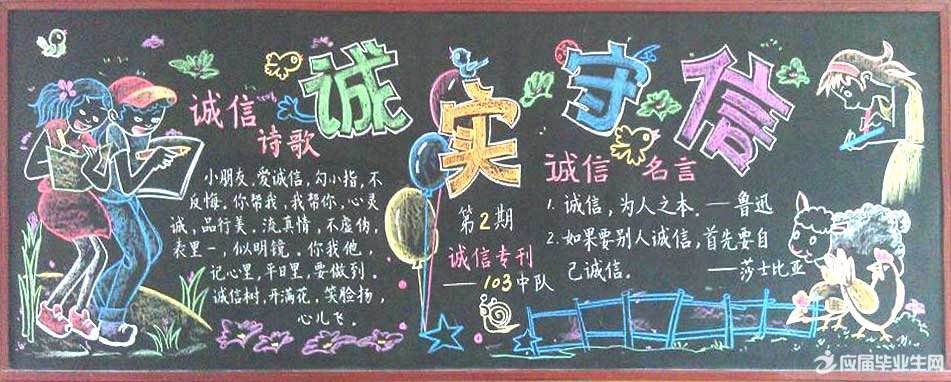 诚实守信
诚信
诗歌
小朋友,爱诚信,勾小指,不
反悔,你帮我,我帮你,心灵
诚,品行美,流真情,不虚伪,
表里一,似明镜,你我他,
记心里,平日里,要做到,
诚信树,开满花,笑脸扬,
心儿飞。
第2期
诚信专刊
——103中队
诚信 名言
1. 诚信,为人之本.——鲁迅
2.如果要别人诚信,首先要自
己诚信。——莎士比亚
应届毕业生网